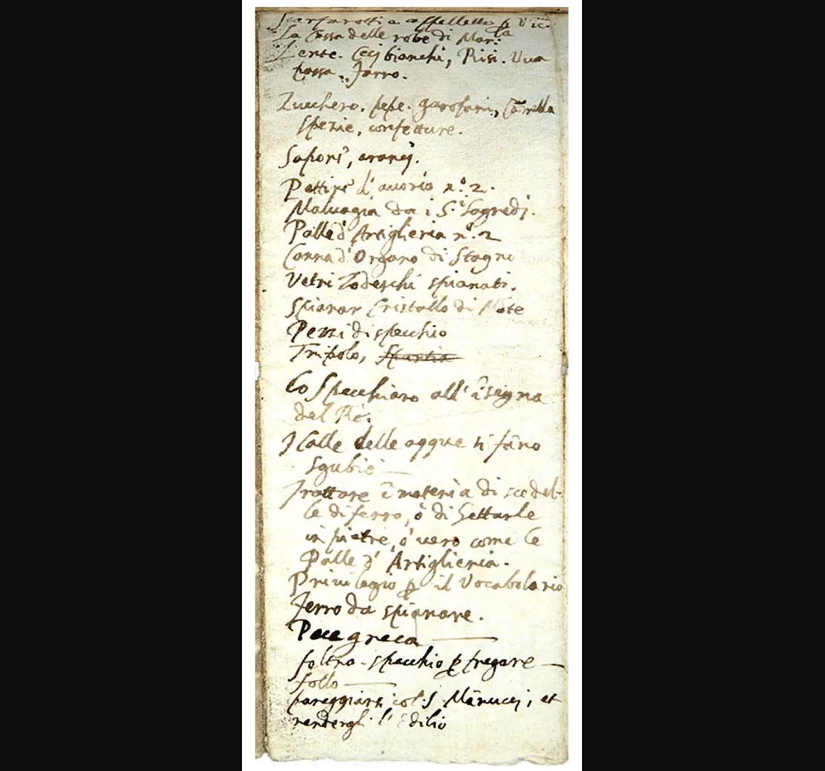 Scarfarotti e cappelletto p Vinc.
La Cassa delle robe di Mar.ta
Lente. Ceci bianchi, Risi. Uva
passa. Farro.
Zucchero. pepe. garofani, Canella
spezie, confetture.
Saponi, aranci.
Pettini d'avorio n.º 2.
Malvagia da i S.i Sagredi.
Palle d'Artiglieria n.º 2
Canna d'Organo di Stagno
Vetri Todeschi spianati.
Spianar Cristallo di Monte
Pezzi di specchio
Tripolo, Spantia
Lo Specchiaro all'isegna
del Rè.
I Calle delle aqque si fano
Sgubie
Trattare i materia di scodel-
le di ferro, ò di Gettarle
in pietre, ò vero come le
Palle d'Artiglieria.
Privilegio p il Vocabolario
Ferro da spianare.
Pece greca
foltro. specchio p fregare
follo
pareggiarsi col S. Manucci, et
rendergli l'Edilio